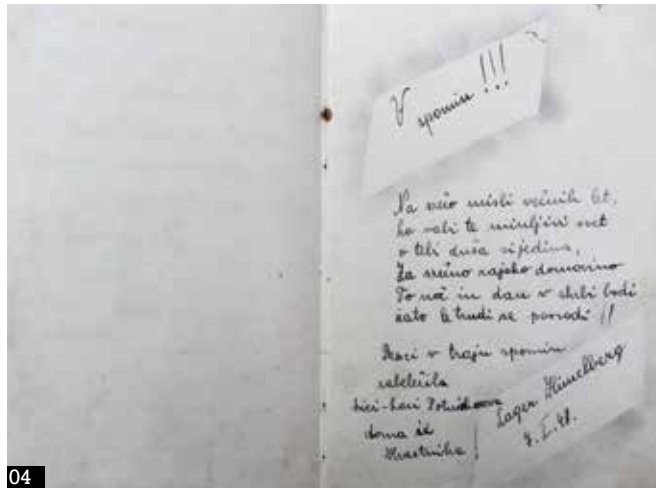 V
spomin !!!
Na srečo misli večnih let,
ko vabi te minljivi svet
v tebi duša si jedina,
Za večno rajsko domovino
To noč in dan v skrbi bodi
zato le trudi se povsodi !!
v trajn spomin
zabeležila
doma iz
Hrastnika !
Lager Himelberg
04